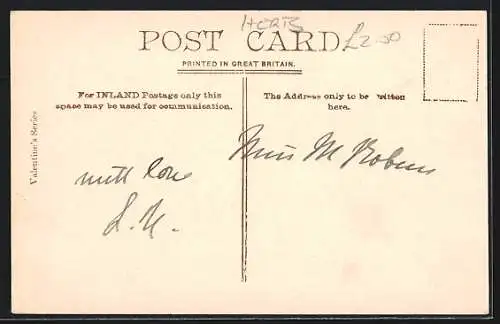 HERTS
£2.50
POST CARD
PRINTED IN GREAT BRITAIN.
For INLAND Postage only this
space may be used for communication.
The Address only to be written
here.
Valentine's Series
with love
Miss M